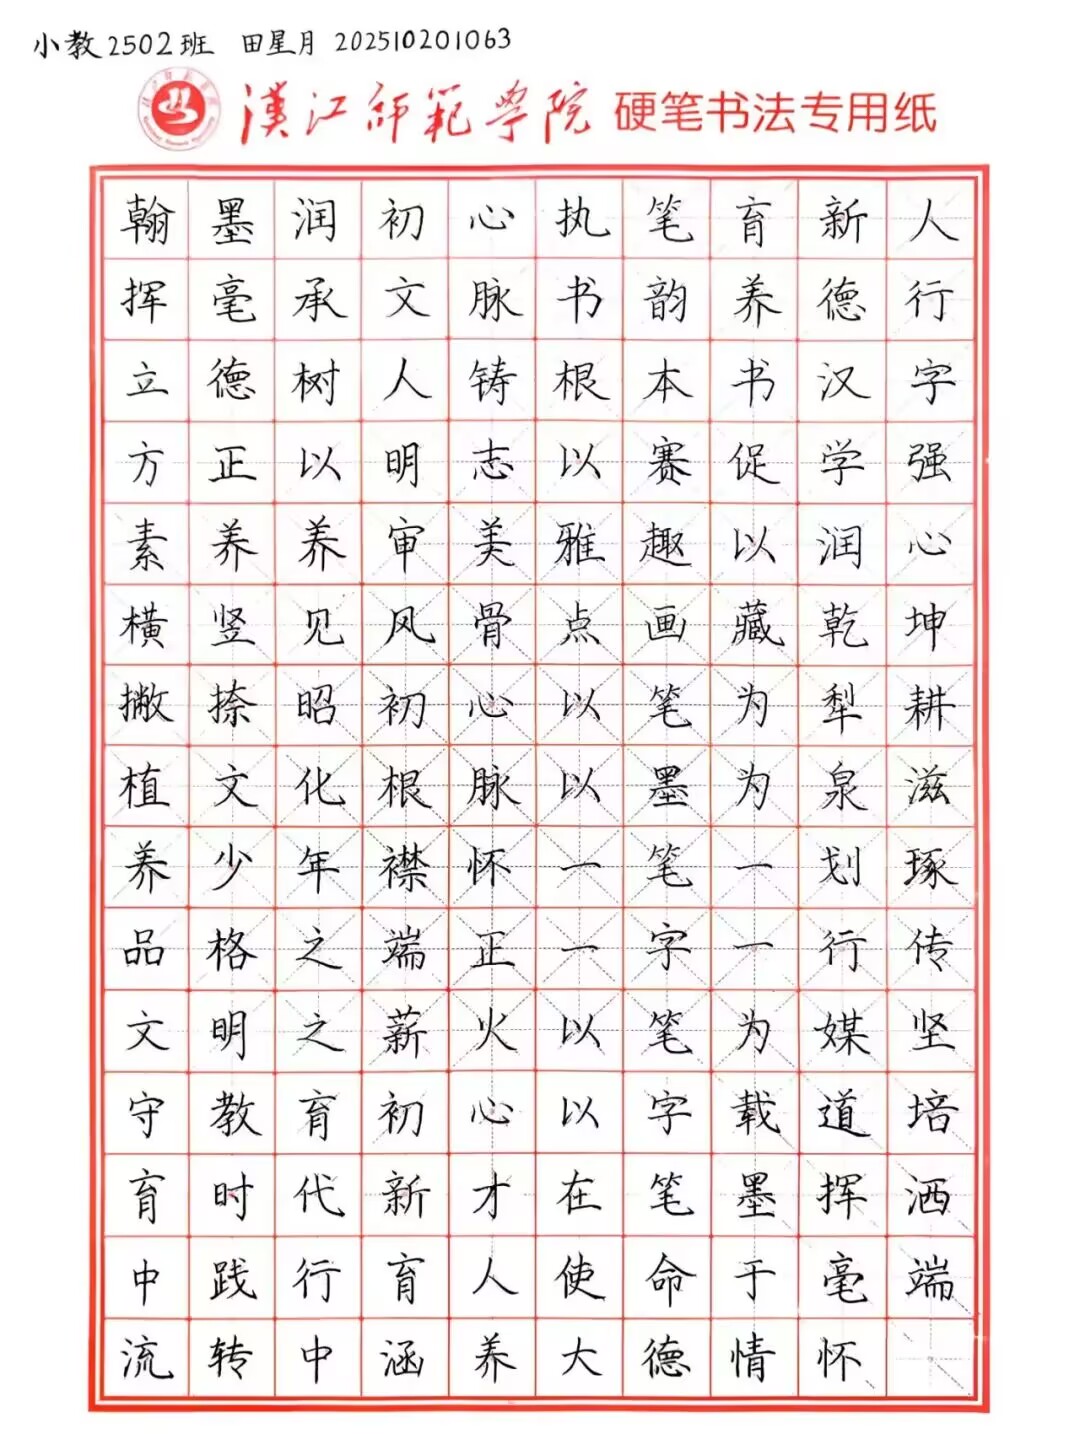 小教2502班 田星月 202510201063
漢江师范学院 硬笔书法专用纸
翰墨润初心执笔育新人
挥毫承文脉书韵养德行
立德树人铸根本书汉字
方正以明志以赛促学强
素养养审美雅趣以润心
横竖见风骨点画藏乾坤
撇捺昭初心以笔为犁耕
植文化根脉以墨为泉滋
养少年襟怀一笔一划琢
品格之端正一字一行传
文明之薪火以笔为媒坚
守教育初心以字载道培
育时代新才在笔墨挥洒
中践行育人使命于毫端
流转中涵养大德情怀